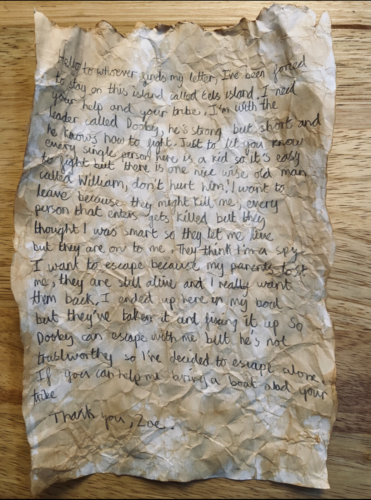 Hello to whoever finds my letter, I've been forced
to stay on this island called Eels island, I need
your help and your tribe, I'm with the
leader called Dooby, he's strong but short and
he knows how to fight. Just to let you know
every single person here is a kid so it's easy
to fight but there is one nice wise old man
called William, don't hurt him! I want to
leave because they might kill me, every
person that enters gets killed but they
thought I was smart so they let me live
but they are on to me. They think I'm a spy.
I want to escape because my parents lost
me, they are still alive and I really want
them back, I ended up here in my boat
but they've taken it and fixing it up so
Dooby can escape with me but he's not
trustworthy so I've decided to escape alone.
If you can help me bring a boat and your
tribe
Thank you, Zoe.